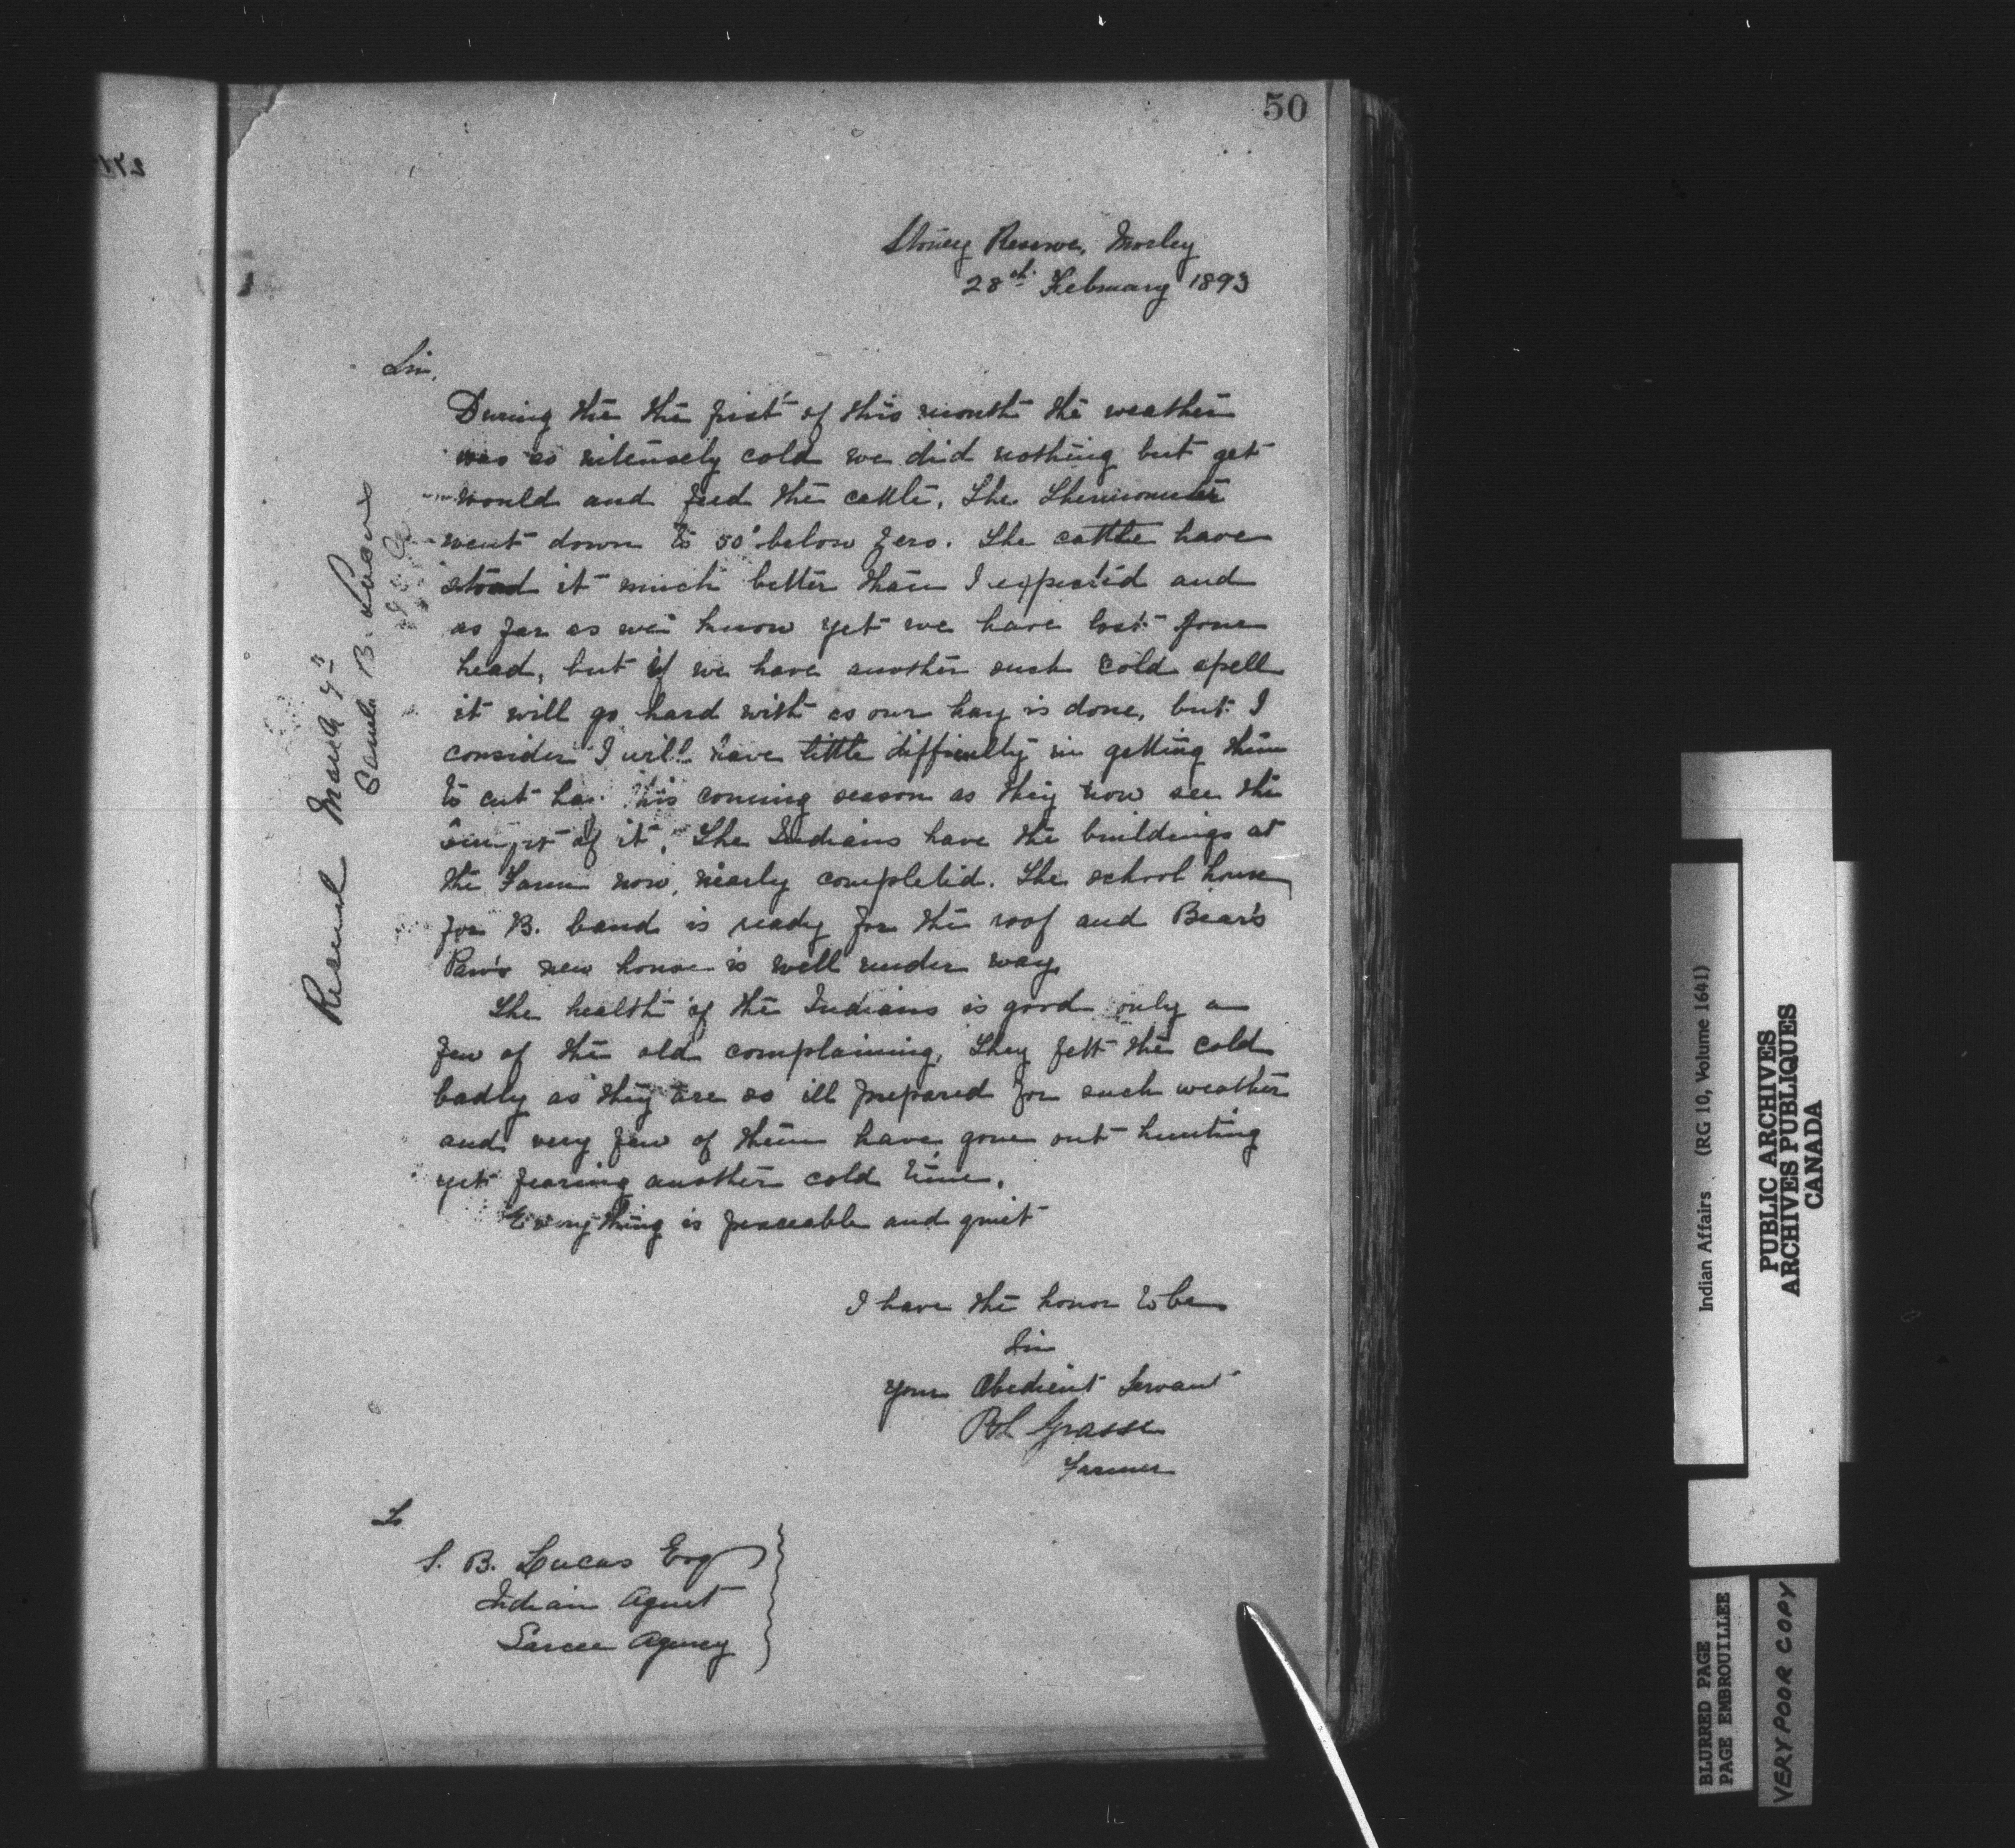 50
Stoney Reserve, Morley
28th February 1893
Sir,
During the the first of this month the weather
was so intensely cold we did nothing but get
would and feed the cattle. The Thermometer
went down to 50° below zero. The cattle have
stood it much better than I expected and
as far as we know yet we have lost four
head, but if we have another such cold spell
it will go hard with as our hay is done, but I
consider I will have little difficulty in getting them
to cut hay this coming season as they now see the
of it. The Indians have the buildings at
the Farm now nearly completed. The school house
for B. band is ready for the roof and Bear's
Paw's new house is well under way
The health of the Indians is good only a
few of the old complaining, They felt the cold
badly as they are so ill prepared for such weather
and very few of them have gone out hunting
yet fearing another cold time.
Everything is peaceable and quiet
I have the honor to be
Sir
Your Obedient Servant
Grasse
Farmer
To
S. B. Lucas Esq
Indian Agent
Sarcee Agency
Received March 9th
Samuel B. Lucas
Indian Affairs (RG 10, Volume 1641)
PUBLIC ARCHIVES
ARCHIVES PUBLIQUES
CANADA
BLURRED PAGE
PAGE EMBROUILLEE
VERY POOR COPY